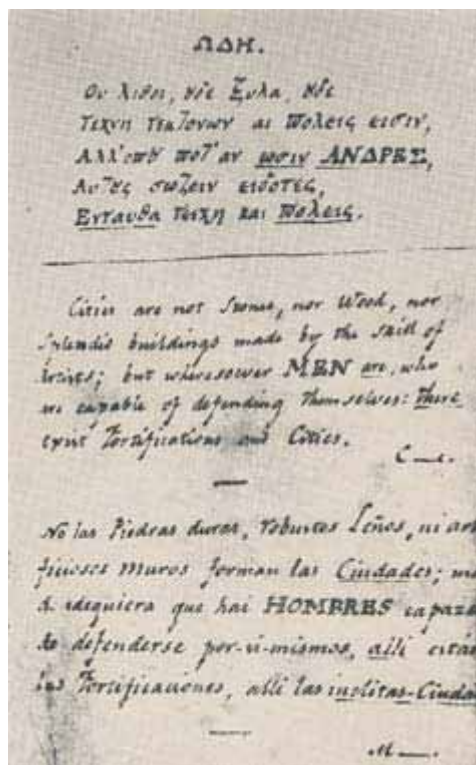 ΩΔΗ.
Ου λιθοι, ȣδε ξυλα, ȣδε
Τεχνη τεκτονων αι πολεις εισιν,
Αλλ' οπȣ ποτ' αν ωσιν ΑΝΔΡΕΣ,
Αυτȣς σωζειν ειδοτες,
Ενταυθα τειχη και πολεις.
Cities are not Stones, nor Wood, nor
Splendid buildings made by the skill of
Artists; but wheresoever MEN are, who
are capable of defending themselves: there
exist Fortifications and Cities.
C—e.
No las Piedras duras, robustos Leños, ni art
ficiosos muros forman las Ciudades; ma
dequiera que hai HOMBRES capaze
de defenderse por-si-mismos, alli estan
las Fortificaciones, alli las inclitas-Ciuda
M—.